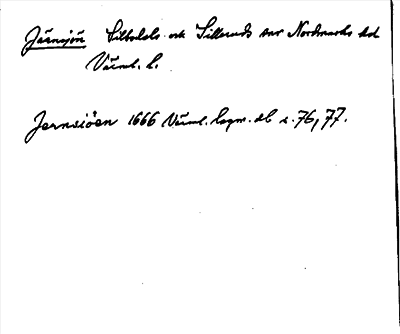 Järnsjön Silbodals ok Silleruds snr Nordmarks hd
Värml. l.
Jernsiöen 1666 Värml. lagm. db s. 76, 77.